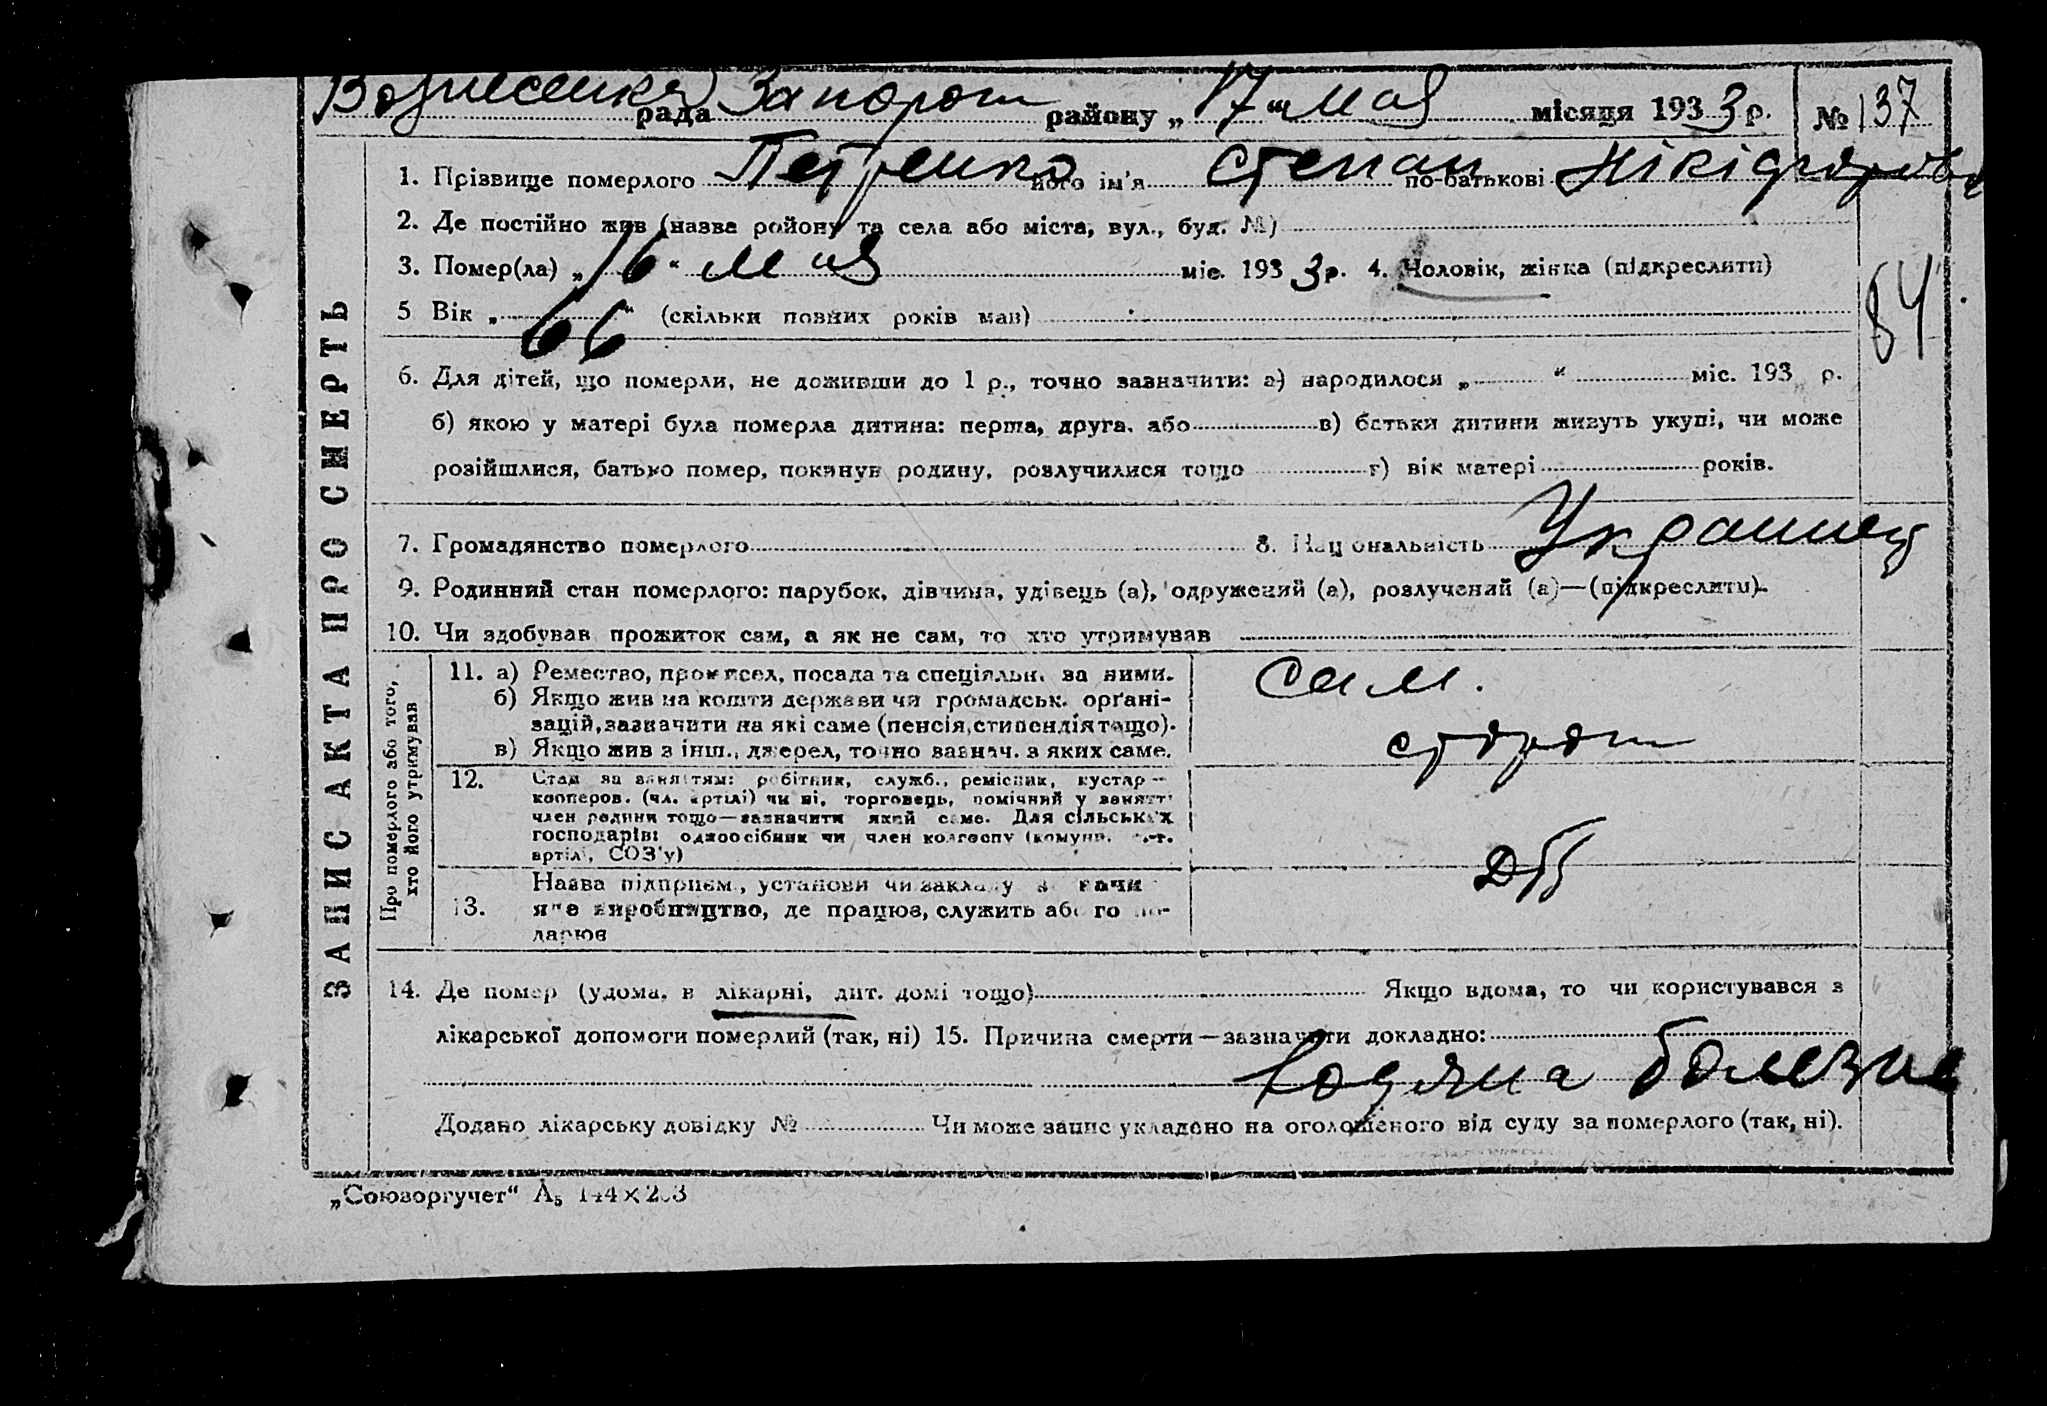 Вознесенка рада Запорож району „17“ мая місяця 1933 р. № 137
1. Прізвище померлого Петренко його ім'я Степан по-батькові Нікіфоров
2. Де постійно жив (назва району та села або міста, вул., буд. №)
3. Помер(ла) „16“ мая міс. 1933 р. 4. Чоловік, жінка (підкреслити)
5 Вік „66“ (скільки повних років мав)
84
6. Для дітей, що померли, не доживши до 1 р., точно зазначити: а) народилося „ “ міс. 193 р.
б) якою у матері була померла дитина: перша, друга, або в) батьки дитини живуть укупі, чи може
розійшлися, батько помер, покинув родину, розлучилися тощо г) вік матері років.
7. Громадянство померлого 8. Національність Украинец
9. Родинний стан померлого: парубок, дівчина, удівець (а), одружений (а), розлучений (а)—(підкреслити).
10. Чи здобував прожиток сам, а як не сам, то хто утримував
ЗАПИС АКТА ПРО СМЕРТЬ
Про померлого або того,
хто його утримував
11. а) Ремество, промисел, посада та спеціяльн. за ними.
б) Якщо жив на кошти держави чи громадськ. орґані-
зацій, зазначити на які саме (пенсія, стипендія тощо).
в) Якщо жив з інш., джерел, точно зазнач. з яких саме.
сам.
сторож
12. Стан за заняттям: робітник, служб., ремісник, кустар —
кооперов. (чл. артілі) чи ні, торговець, помічний у занятті
член родини тощо—зазначити який саме. Для сільських
господарів: одноосібник чи член колгоспу (комуни,
артілі, СОЗ'у)
13. Назва підприєм., установи чи закладу
яке виробництво, де працює, служить або го по-
дарює
14. Де помер (удома, в лікарні, дит. домі тощо) Якщо вдома, то чи користувався з
лікарської допомоги померлий (так, ні) 15. Причина смерти—зазначити докладно:
водяна болезне
Додано лікарську довідку № Чи може запис укладено на оголошеного від суду за померлого (так, ні).
„Союзоргучет“ А₅ 144×203